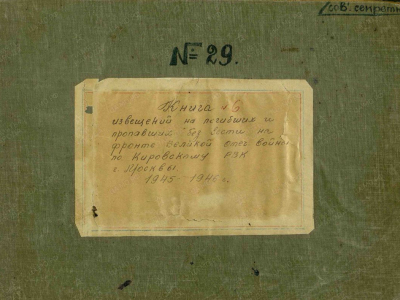 Сов. секретн
№ 29.
Книга
извещений на погибших и
пропавших без вести на
фронте великой отеч войны
по Кировскому РВК
г. Москвы.
1945-1946 г.